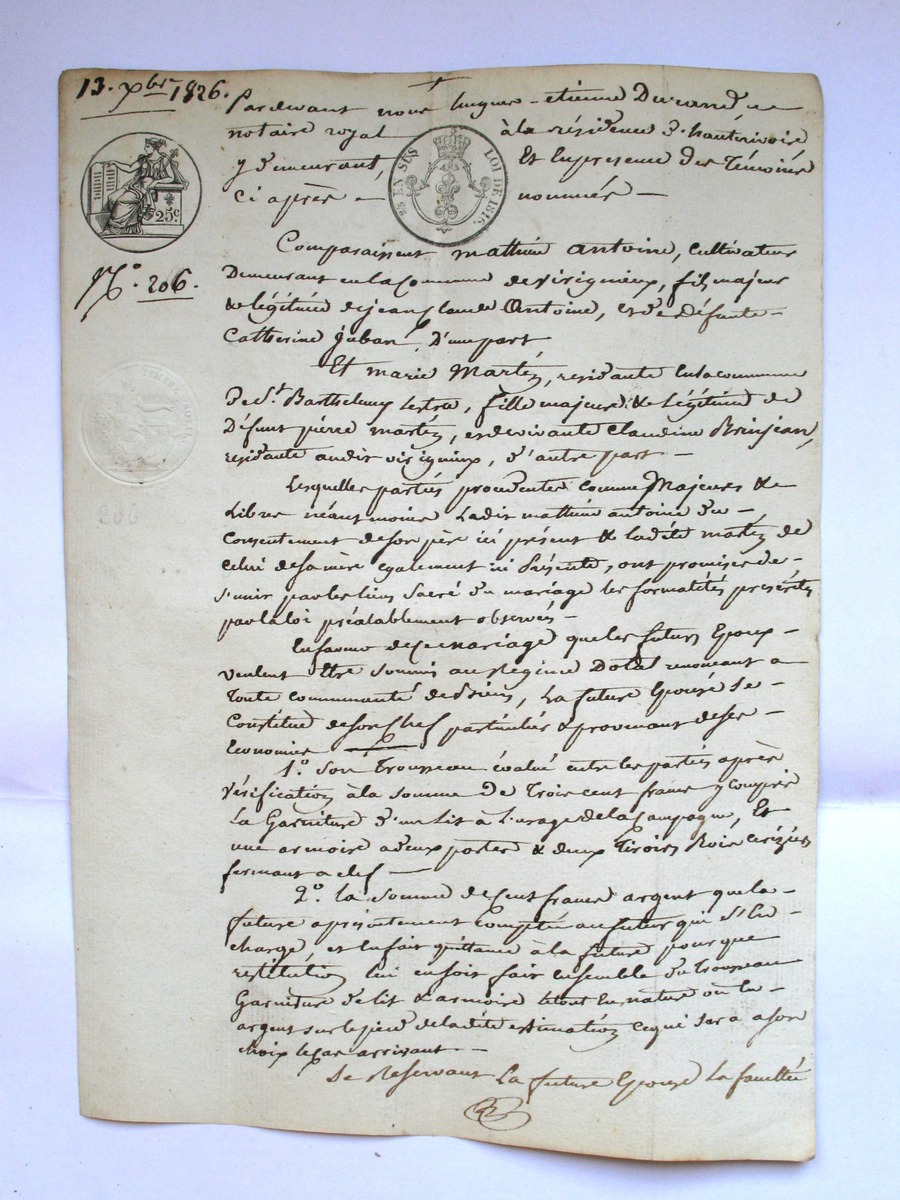 13. Xbre 1826.
Pardevant nous hugues-etienne Durand
notaire royal à la résidence d'hauterivoire
y demeurant, Et En presence des Témoins
Ci après - nommés -
25 EN SUS
LOI DE 1816.
25c.
N.º 206.
TIMBRE ROYAL
Comparaissent mathieu antoine, Cultivateur
Demeurant en la Commune de virigneux, fils majeur
& légitime de jean claude Antoine, et de défunte -
Catherine Juban, D'une part
Et marie Martin, residante En la commune
De St. Barthelemy Lestra, fille majeure & Légitime de
Défunt pierre martin, et de vivante Claudine Brinjean,
residante audit virigneux, d'autre part -
Lesquelles parties procedantes comme Majeures &
Libres néant moins Ledit mathieu antoine du -
Consentement de son père ici présent & ladite martin de
Celui de sa mère également ici présente, ont promises de -
s'unir par les liens Sacré du mariage les formalités prescrites
par la loi préalablement observés -
En faveur de ce mariage que les futurs Epoux -
veulent être soumis au Régime Dotal renonçant a
Toute communauté de Biens, La future Epouse se -
Constitue de son Chef particulier & provenant de ses -
Economies
1.º Son Trousseau évalué entre les parties après
vérification à la somme De Trois cent francs y compris
La Garniture d'un Lit à L'usage de la Campagne, Et
une armoire a deux portes & deux Tiroirs Bois cerizier
fermant a clef -
2.º La Somme de Cent francs argent que la -
future a présentement Comptée au futur qui s'En -
charge, et En fait quittance à la future pour que
restitution lui en soit fait ensemble du Trousseau
Garniture de lit & armoire le tout En nature ou En -
argent sur le pied de la dite estimation ce qui sera a son
choix le cas arrivant. -
Se Reservant La future Epouse La faculté